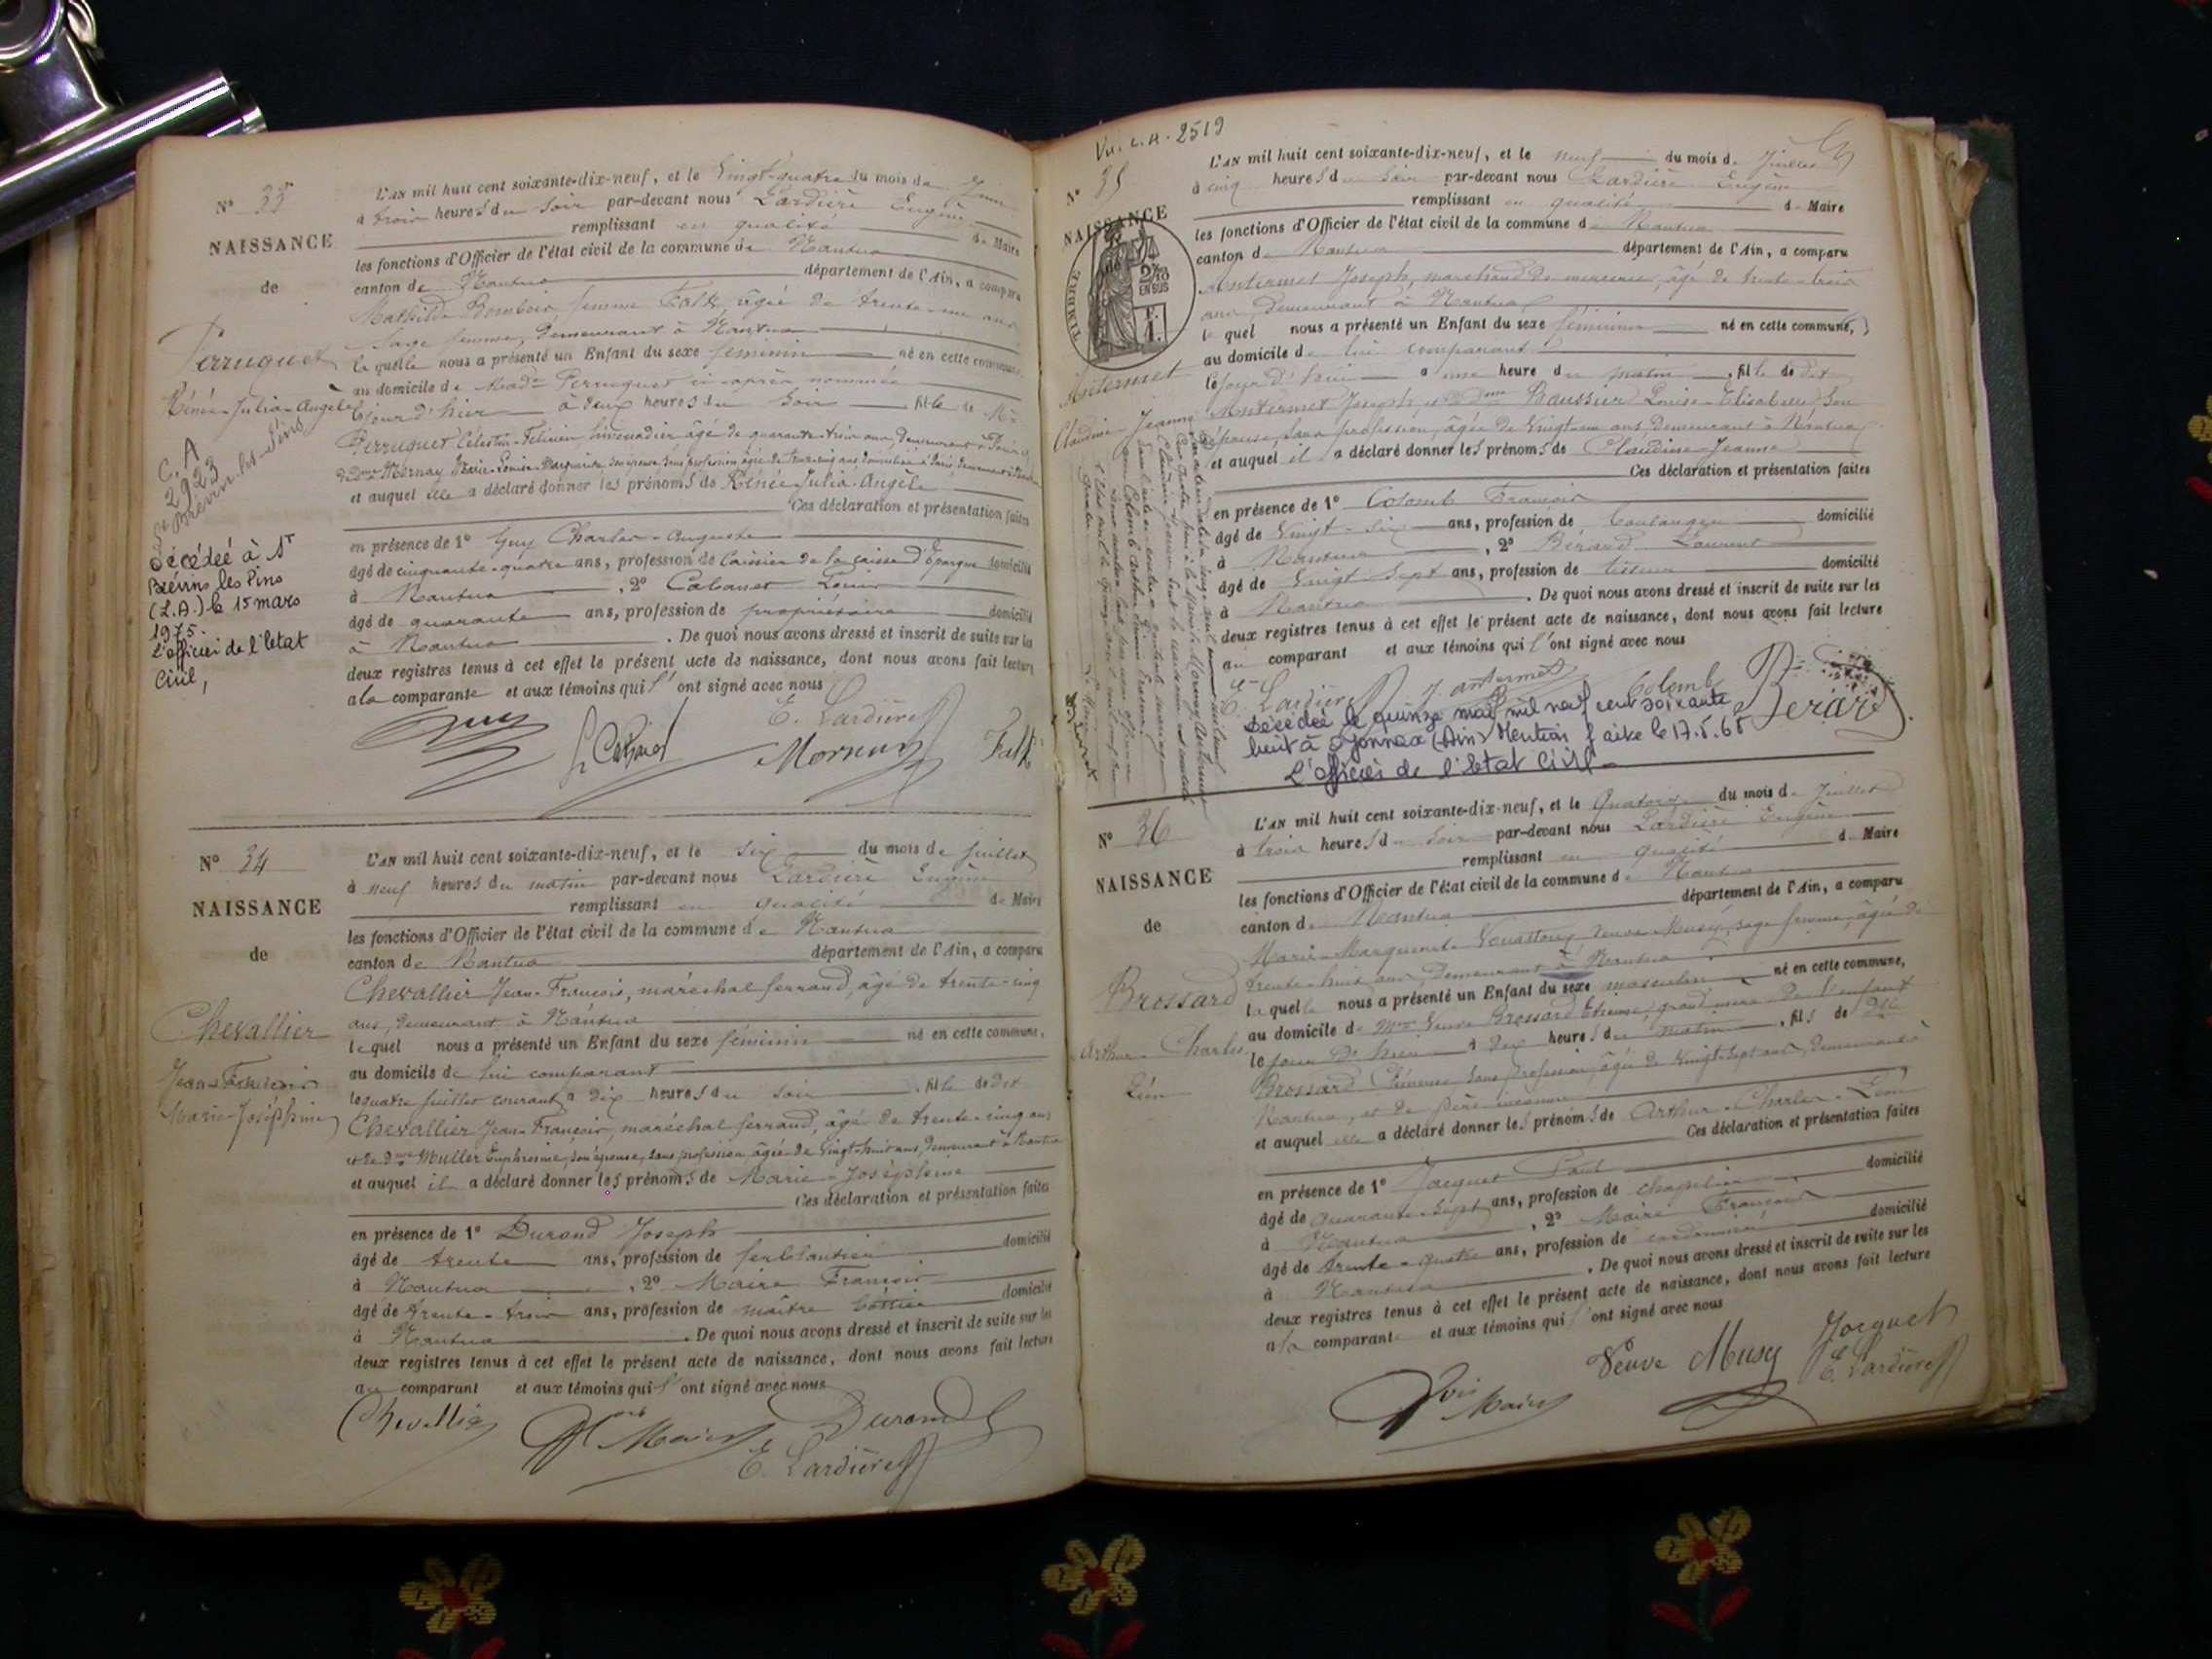 N° 33
NAISSANCE
de
Perruquet
Rénée-Julia-Angèle
C. A
2923
Décédée à St
Brévins les Pins
(L.A.) le 15 mars
1975.
L'officier de l'état
Civil,
L'AN mil huit cent soixante-dix-neuf, et le vingt-quatre du mois de Juin
à trois heures du soir par-devant nous Lardière Eugène
remplissant en qualité de Maire
les fonctions d'Officier de l'état civil de la commune de Nantua
canton de Nantua département de l'Ain, a comparu
Mathilde femme Falk âgée de trente-un ans
Sage femme, demeurant à Nantua
laquelle nous a présenté un Enfant du sexe féminin né en cette commune,
au domicile de Made Perruquet ci-après nommée
le jour d'hier à deux heures du soir fille de Mr
Perruquet Célestin-Félicien limonadier âgé de quarante-trois ans, demeurant à Paris,
et de dme Mornay Marie-Louise-Marguerite, son épouse, sans profession âgée de trente-cinq ans domiciliée à Paris, demeurant à Nantua
et auquel elle a déclaré donner les prénoms de Rénée-Julia-Angèle
Ces déclaration et présentation faites
en présence de 1° Guy Charles-Auguste
âgé de cinquante-quatre ans, profession de Caissier de la Caisse d'Epargne domicilié
à Nantua, 2° Cabanet Louis
âgé de quarante ans, profession de propriétaire domicilié
à Nantua. De quoi nous avons dressé et inscrit de suite sur les
deux registres tenus à cet effet le présent acte de naissance, dont nous avons fait lecture
à la comparante et aux témoins qui l'ont signé avec nous
Guy E. Lardière
Mornay Falk
N° 34
NAISSANCE
de
Chevallier
Marie-Joséphine
L'AN mil huit cent soixante-dix-neuf, et le six du mois de juillet
à neuf heures du matin par-devant nous Lardière Eugène
remplissant en qualité de Maire
les fonctions d'Officier de l'état civil de la commune de Nantua
canton de Nantua département de l'Ain, a comparu
Chevallier Jean-François, maréchal ferrand, âgé de trente-cinq
ans, demeurant à Nantua
lequel nous a présenté un Enfant du sexe féminin né en cette commune,
au domicile de lui comparant
le quatre juillet courant à dix heures du soir, fille de dit
Chevallier Jean-François, maréchal ferrand, âgé de trente-cinq ans
et de dme Muller Euphrosine, son épouse, sans profession, âgée de vingt-huit ans, demeurant à Nantua
et auquel il a déclaré donner les prénoms de Marie-Joséphine
Ces déclaration et présentation faites
en présence de 1° Durand Joseph
âgé de trente ans, profession de ferblantier domicilié
à Nantua, 2° Maire François
âgé de trente-trois ans, profession de maître bottier domicilié
à Nantua. De quoi nous avons dressé et inscrit de suite sur les
deux registres tenus à cet effet le présent acte de naissance, dont nous avons fait lecture
au comparant et aux témoins qui l'ont signé avec nous
Chevallier Maire Durand
E. Lardière
Vu. C.A. 2519
N° 35
NAISSANCE
de
TIMBRE
2/10
EN SUS
1 F.
Antermet
Claudine-Jeanne
L'AN mil huit cent soixante-dix-neuf, et le neuf du mois de Juillet
à cinq heures du soir par-devant nous Lardière Eugène
remplissant en qualité de Maire
les fonctions d'Officier de l'état civil de la commune de Nantua
canton de Nantua département de l'Ain, a comparu
Antermet Joseph, marchand de mercerie, âgé de trente-trois
ans, demeurant à Nantua
lequel nous a présenté un Enfant du sexe féminin né en cette commune,
au domicile de lui comparant
le jour d'hier à une heure du matin, fille de dit
Antermet Joseph, et de dme Louise-Elisabeth son
épouse, sans profession, âgée de vingt-un ans, demeurant à Nantua
et auquel il a déclaré donner les prénoms de Claudine-Jeanne
Ces déclaration et présentation faites
en présence de 1° Colomb François
âgé de vingt-six ans, profession de boulanger domicilié
à Nantua, 2° Bérard Laurent
âgé de vingt-sept ans, profession de tisseur domicilié
à Nantua. De quoi nous avons dressé et inscrit de suite sur les
deux registres tenus à cet effet le présent acte de naissance, dont nous avons fait lecture
au comparant et aux témoins qui l'ont signé avec nous
E. Lardière J. Antermet Colomb Bérard
Décédée le quinze mai mil neuf cent soixante
huit à Oyonnax (Ain) Mention faite le 17.5.68
L'officier de l'état civil
N° 36
NAISSANCE
de
Brossard
Arthur-Charles
Léon
L'AN mil huit cent soixante-dix-neuf, et le quatorze du mois de Juillet
à trois heures du soir par-devant nous Lardière Eugène
remplissant en qualité de Maire
les fonctions d'Officier de l'état civil de la commune de Nantua
canton de Nantua département de l'Ain, a comparu
Marie-Marguerite veuve Musy, sage femme, âgée de
trente-huit ans, demeurant à Nantua
laquelle nous a présenté un Enfant du sexe masculin né en cette commune,
au domicile de Mme Veuve Brossard Etienne, grand'mère de l'enfant
le jour d'hier à dix heures du matin, fils de dlle
Brossard sans profession, âgée de vingt-sept ans, demeurant à
Nantua, et de père inconnu
et auquel elle a déclaré donner les prénoms de Arthur-Charles-Léon
Ces déclaration et présentation faites
en présence de 1° Jacquet Paul
âgé de quarante-sept ans, profession de chapelier domicilié
à Nantua, 2° Maire François
âgé de trente-quatre ans, profession de cordonnier domicilié
à Nantua. De quoi nous avons dressé et inscrit de suite sur les
deux registres tenus à cet effet le présent acte de naissance, dont nous avons fait lecture
à la comparante et aux témoins qui l'ont signé avec nous
Veuve Musy Jacquet
Maire E. Lardière